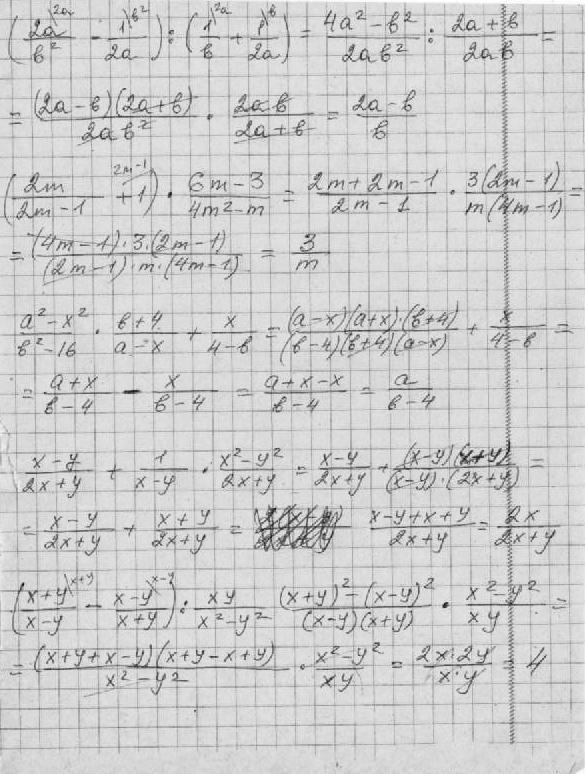 (2a/в² \2a - 1/2a \в²) : (1/в \2a + 1/2a \в) = (4a² - в²)/(2aв²) : (2a + в)/(2aв) =
= ((2a - в)(2a + в))/(2aв²) · (2aв)/(2a + в) = (2a - в)/в
(2m/(2m - 1) + 1 \2m-1) · (6m - 3)/(4m² - m) = (2m + 2m - 1)/(2m - 1) · (3(2m - 1))/(m(4m - 1)) =
= ((4m - 1) · 3 · (2m - 1))/((2m - 1) · m · (4m - 1)) = 3/m
(a² - x²)/(в² - 16) · (в + 4)/(a - x) + x/(4 - в) = ((a - x)(a + x) · (в + 4))/((в - 4)(в + 4)(a - x)) + x/(4 - в) =
= (a + x)/(в - 4) - x/(в - 4) = (a + x - x)/(в - 4) = a/(в - 4)
(x - y)/(2x + y) + 1/(x - y) · (x² - y²)/(2x + y) = (x - y)/(2x + y) + ((x - y)(x + y))/((x - y) · (2x + y)) =
= (x - y)/(2x + y) + (x + y)/(2x + y) = (x - y + x + y)/(2x + y) = 2x/(2x + y)
((x + y)/(x - y) \x+y - (x - y)/(x + y) \x-y) : xy/(x² - y²) ((x + y)² - (x - y)²)/((x - y)(x + y)) · (x² - y²)/xy =
= ((x + y + x - y)(x + y - x + y))/(x² - y²) · (x² - y²)/xy = (2x · 2y)/(x · y) = 4